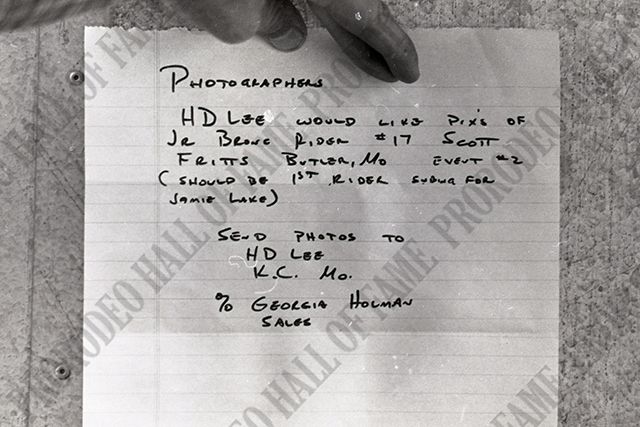 PHOTOGRAPHERS
HD LEE WOULD LIKE PIX'S OF
JR BRONC RIDER #17 SCOTT
FRITTS BUTLER, MO EVENT #2
(SHOULD BE 1ST RIDER SUBING FOR
JAMIE LAKE)
SEND PHOTOS TO
HD LEE
K.C. MO.
% GEORGIA HOLMAN
SALES
PRORODEO HALL OF FAME
PRORODEO HALL OF FAME
PRORODEO HALL OF FAME